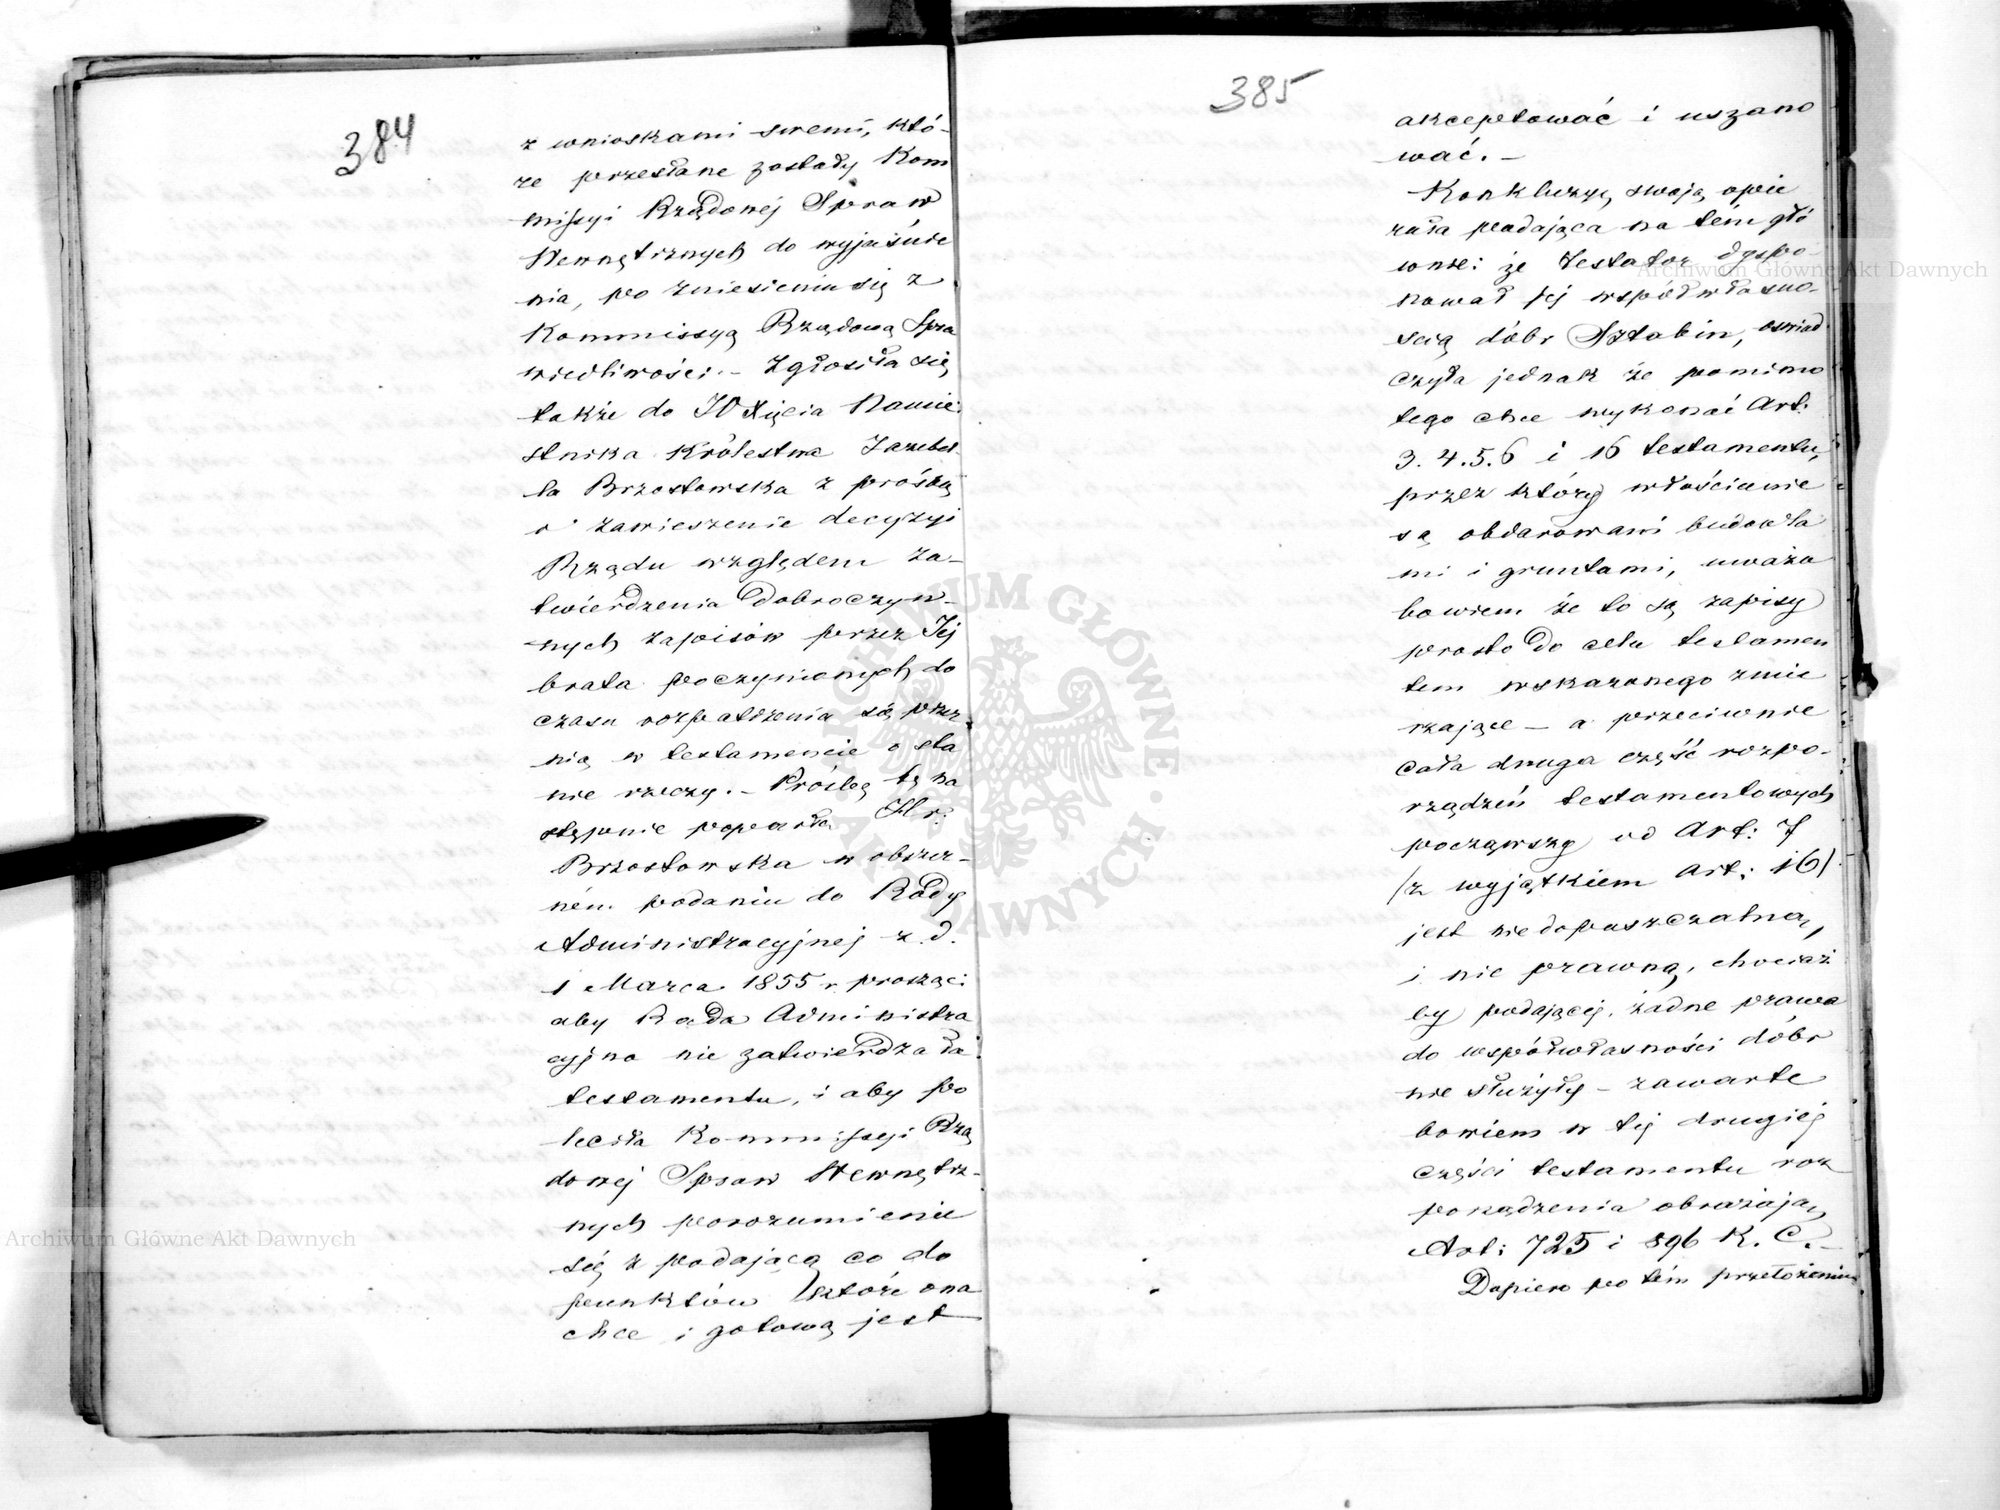 384
z wnioskami swemi, któ-
re przesłane zostały Kom
missyi Rządowej Spraw
Wewnętrznych do wyjaśnie
nia, po zniesieniu się z
Kommissyą Rządową Spra
wiedliwości. – Zgłosiła się
także do JO Xięcia Namie-
stnika Królestwa Izabel-
la Brzostowska z prośbą
o zawieszenie decyzyi
Rządu względem za-
twierdzenia Dobroczyn-
nych zapisów przez Jej
brata poczynionych do
czasu rozpatrzenia się przez
nią w testamencie o sta
nie rzeczy. – Prośbę tę na
stępnie poparła Hr.
Brzostowska w obszer-
ném podaniu do Rady
Administracyjnej z d.
1 Marca 1855 r. prosząc:
aby Rada Administra
cyjna nie zatwierdzała
testamentu, i aby po
leciła Kommissyi Rzą
dowej Spraw Wewnętrz-
nych porozumienie
się z podającą co do
punktów które ona
chce i gotową jest
385
akceptować i uszano
wać. –
Konkluzyę swoją opie
rała podająca na tém głó
wnie: że Testator dyspo-
nował jej współwłasno-
ścią dóbr Sztabin, oświad
czyła jednak że pomimo
tego chce wykonać Art:
3. 4. 5. 6 i 16 testamentu,
przez który włościanie
są obdarowani budowla
mi i gruntami, uważa
bowiem że to są zapisy
prosto do celu testamen
tem wskazanego zmie
rzające – a przeciwnie
cała druga część rozpo-
rządzeń testamentowych
począwszy od Art: 7
/z wyjątkiem Art: 16/
jest niedopuszczalną,
i nie prawną, chociaż
by podającej, żadne prawa
do współwłasności dóbr
nie służyły – zawarte
bowiem w tej drugiej
części testamentu roz
porządzenia obrażają
Art: 725 i 896 K. C. –
Dopiero po tém przełożeniu
Archiwum Główne Akt Dawnych
Archiwum Główne Akt Dawnych
ARCHIWUM GŁÓWNE · AKT DAWNYCH ·